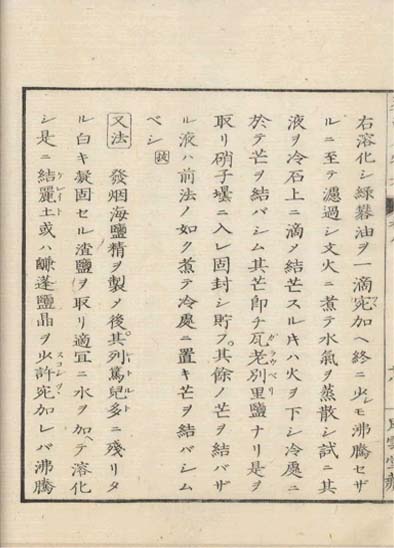 右溶化シ緑礬油ヲ一滴宛加ヘ終ニ少シモ沸騰セザ
ルニ至テ濾過シ文火ニ煮テ水氣ヲ蒸散シ試ニ其
液ヲ冷石上ニ滴メ結芒スル𪜈ハ火ヲ下シ冷處ニ
於テ芒ヲ結バシム其芒卽チ瓦老別里鹽ナリ是ヲ
取リ硝子壜ニ入レ固封シ貯フ其餘ノ芒ヲ結バザ
ル液ハ前法ノ如ク煮テ冷處ニ置キ芒ヲ結バシム
ベシ
又法 發烟海鹽精ヲ製メ後其列篤兒多ニ殘リタ
ル白キ凝固セル渣鹽ヲ取リ適宜ニ水ヲ加ヘテ溶化
シ是ニ結麗土或ハ鹻蓬鹽晶ヲ少許宛加レバ沸騰